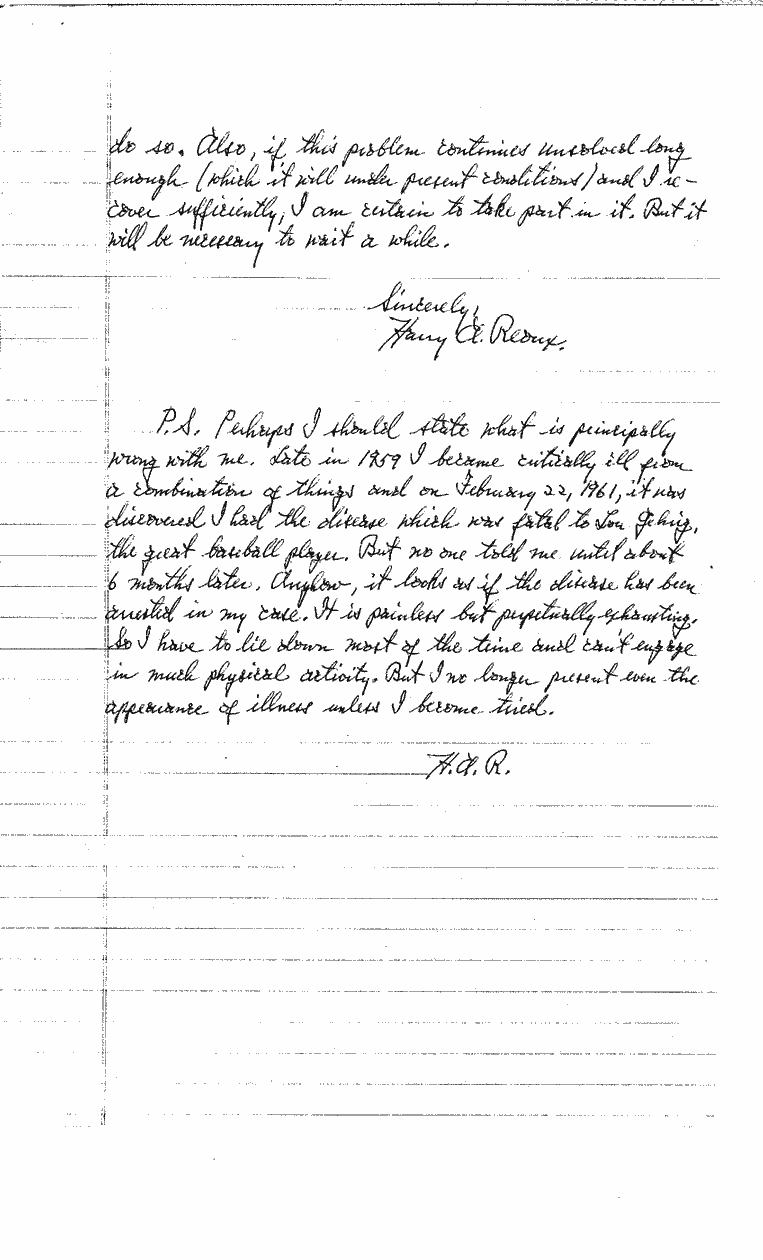 do so. Also, if this problem continues unsolved long
enough (which it will under present conditions) and I re-
cover sufficiently, I am certain to take part in it. But it
will be necessary to wait a while.
Sincerely,
Harry A. Reoux.
P.S. Perhaps I should state what is principally
wrong with me. Late in 1959 I became critically ill from
a combination of things and on February 22, 1961, it was
discovered I had the disease which was fatal to Lou Gehrig,
the great baseball player. But no one told me until about
6 months later. Anyhow, it looks as if the disease has been
arrested in my case. It is painless but perpetually exhausting.
So I have to lie down most of the time and can't engage
in much physical activity. But I no longer present even the
appearance of illness unless I become tired.
H.A.R.